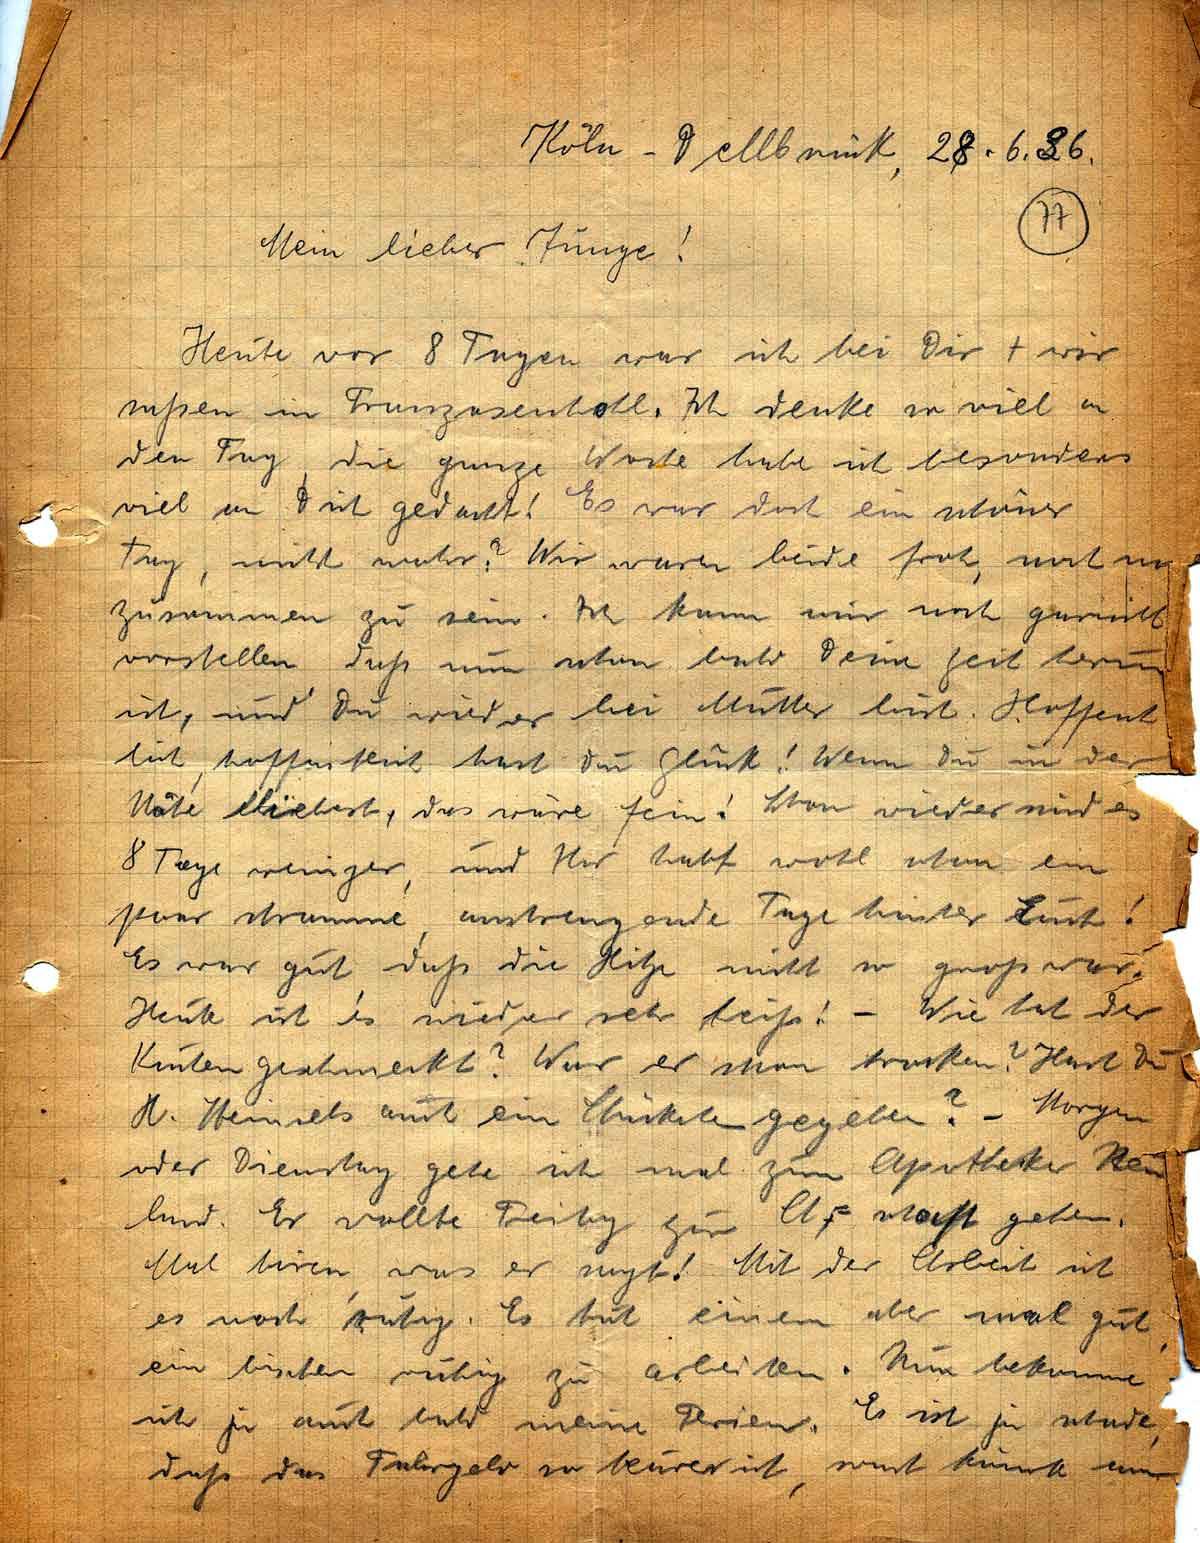 Köln-Dellbrück, 28.6.36.
77
Mein lieber Junge!
Heute vor 8 Tagen war ich bei Dir + wir
saßen in Franzosenhohl. Ich denke so viel an
den Tag, die ganze Woche habe ich besonders
viel an Dich gedacht! Es war doch ein schöner
Tag, nicht wahr? Wir waren beide froh, mal
zusammen zu sein. Ich kann mir noch gar nicht
vorstellen daß nun schon bald Deine Zeit herum
ist, und Du wieder bei Mutter bist. Hoffent
lich, hoffentlich hast Du Glück! Wenn Du in der
Nähe bliebest, das wäre fein! Schon wieder sind es
8 Tage weniger, und Ihr habt wohl schon ein
paar stramme, anstrengende Tage hinter Euch!
Es war gut, daß die Hitze nicht so groß war.
Heute ist es wieder sehr heiß! - Wie hat der
Kuchen geschmeckt? War er schon trocken? Hast Du
H. auch ein Stückchen gegeben? - Morgen
oder Dienstag gehe ich mal zum Apotheker
land. Er wollte Freitag zur gehen.
Mal hören, was er sagt! Mit der Arbeit ist
es noch ruhig. Es tut einem aber mal gut,
ein bischen ruhig zu arbeiten. Nun bekomme
ich ja auch bald meine Ferien. Es ist ja schade,
daß das Fahrgeld so teuer ist, sonst könnte man